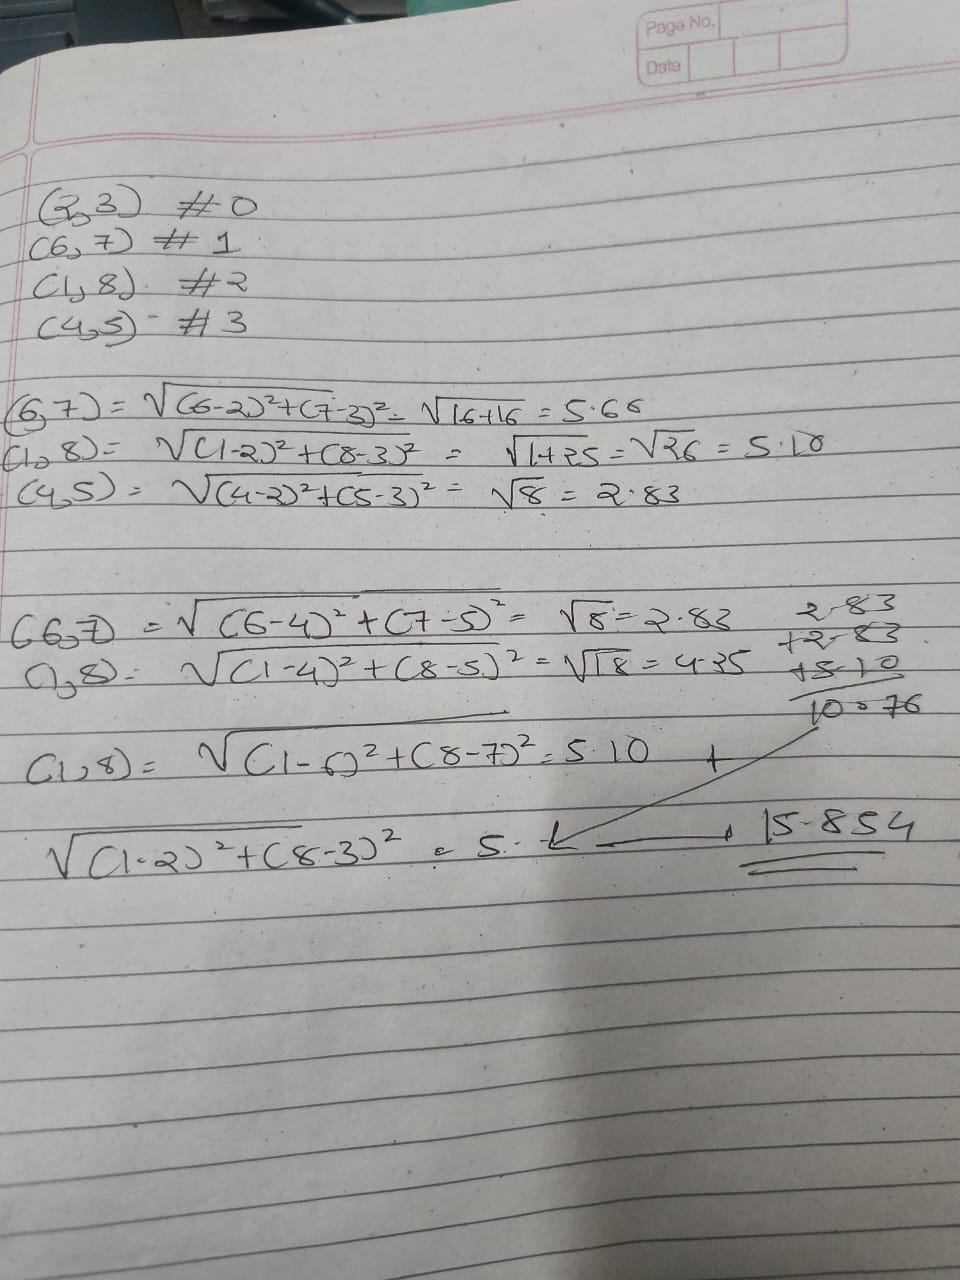 Page No.
Date
(2,3) #0
(6,7) #1
(1,8) #2
(4,5) #3
(6,7) = √(6-2)²+(7-3)² = √16+16 = 5.66
(1,8) = √(1-2)²+(8-3)² = √1+25 = √26 = 5.10
(4,5) = √(4-2)²+(5-3)² = √8 = 2.83
(6,7) = √(6-4)²+(7-5)² = √8 = 2.83
2.83
(1,8) = √(1-4)²+(8-5)² = √18 = 4.35
+2.83
+5.10
10.76
(1,8) = √(1-6)²+(8-7)² = 5.10 +
√(1-2)²+(8-3)² = 5. → 15.854